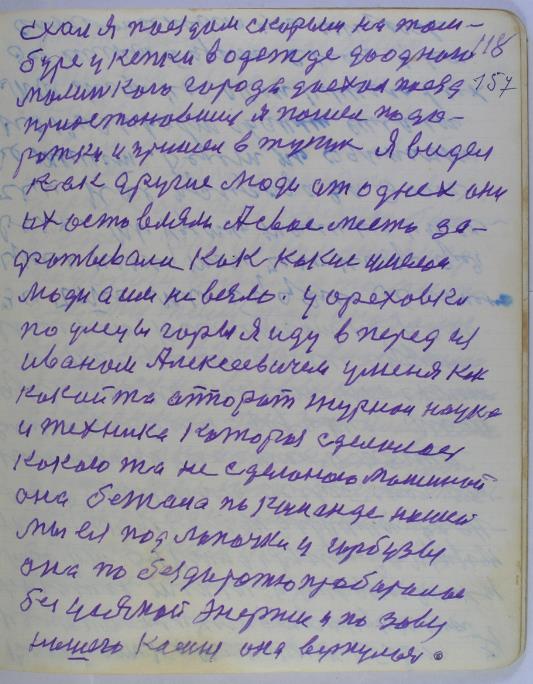 ехал я поездом скорым на там-
буре у кежки в одежде до одного 118
малинкого города доехал поезд 157
приостоновился я пошел по до-
рожки и пришел в тупик я видел
как другие люди от однех они
их оставляли А свое месть за-
как какие
люди а им не веяль. у ореховки
по улецы горы я иду в перед и
Иваном Алексеевичем уменя как
какойта аппорат журнал наука
и техника которы сделолся
какою та не сделоною машиной
она бежала по команде нашей
мы ея под лапачки и гарбузы
она по бездарожю пробаралас
без усякой энержии и по зову
нашего она вернулася.